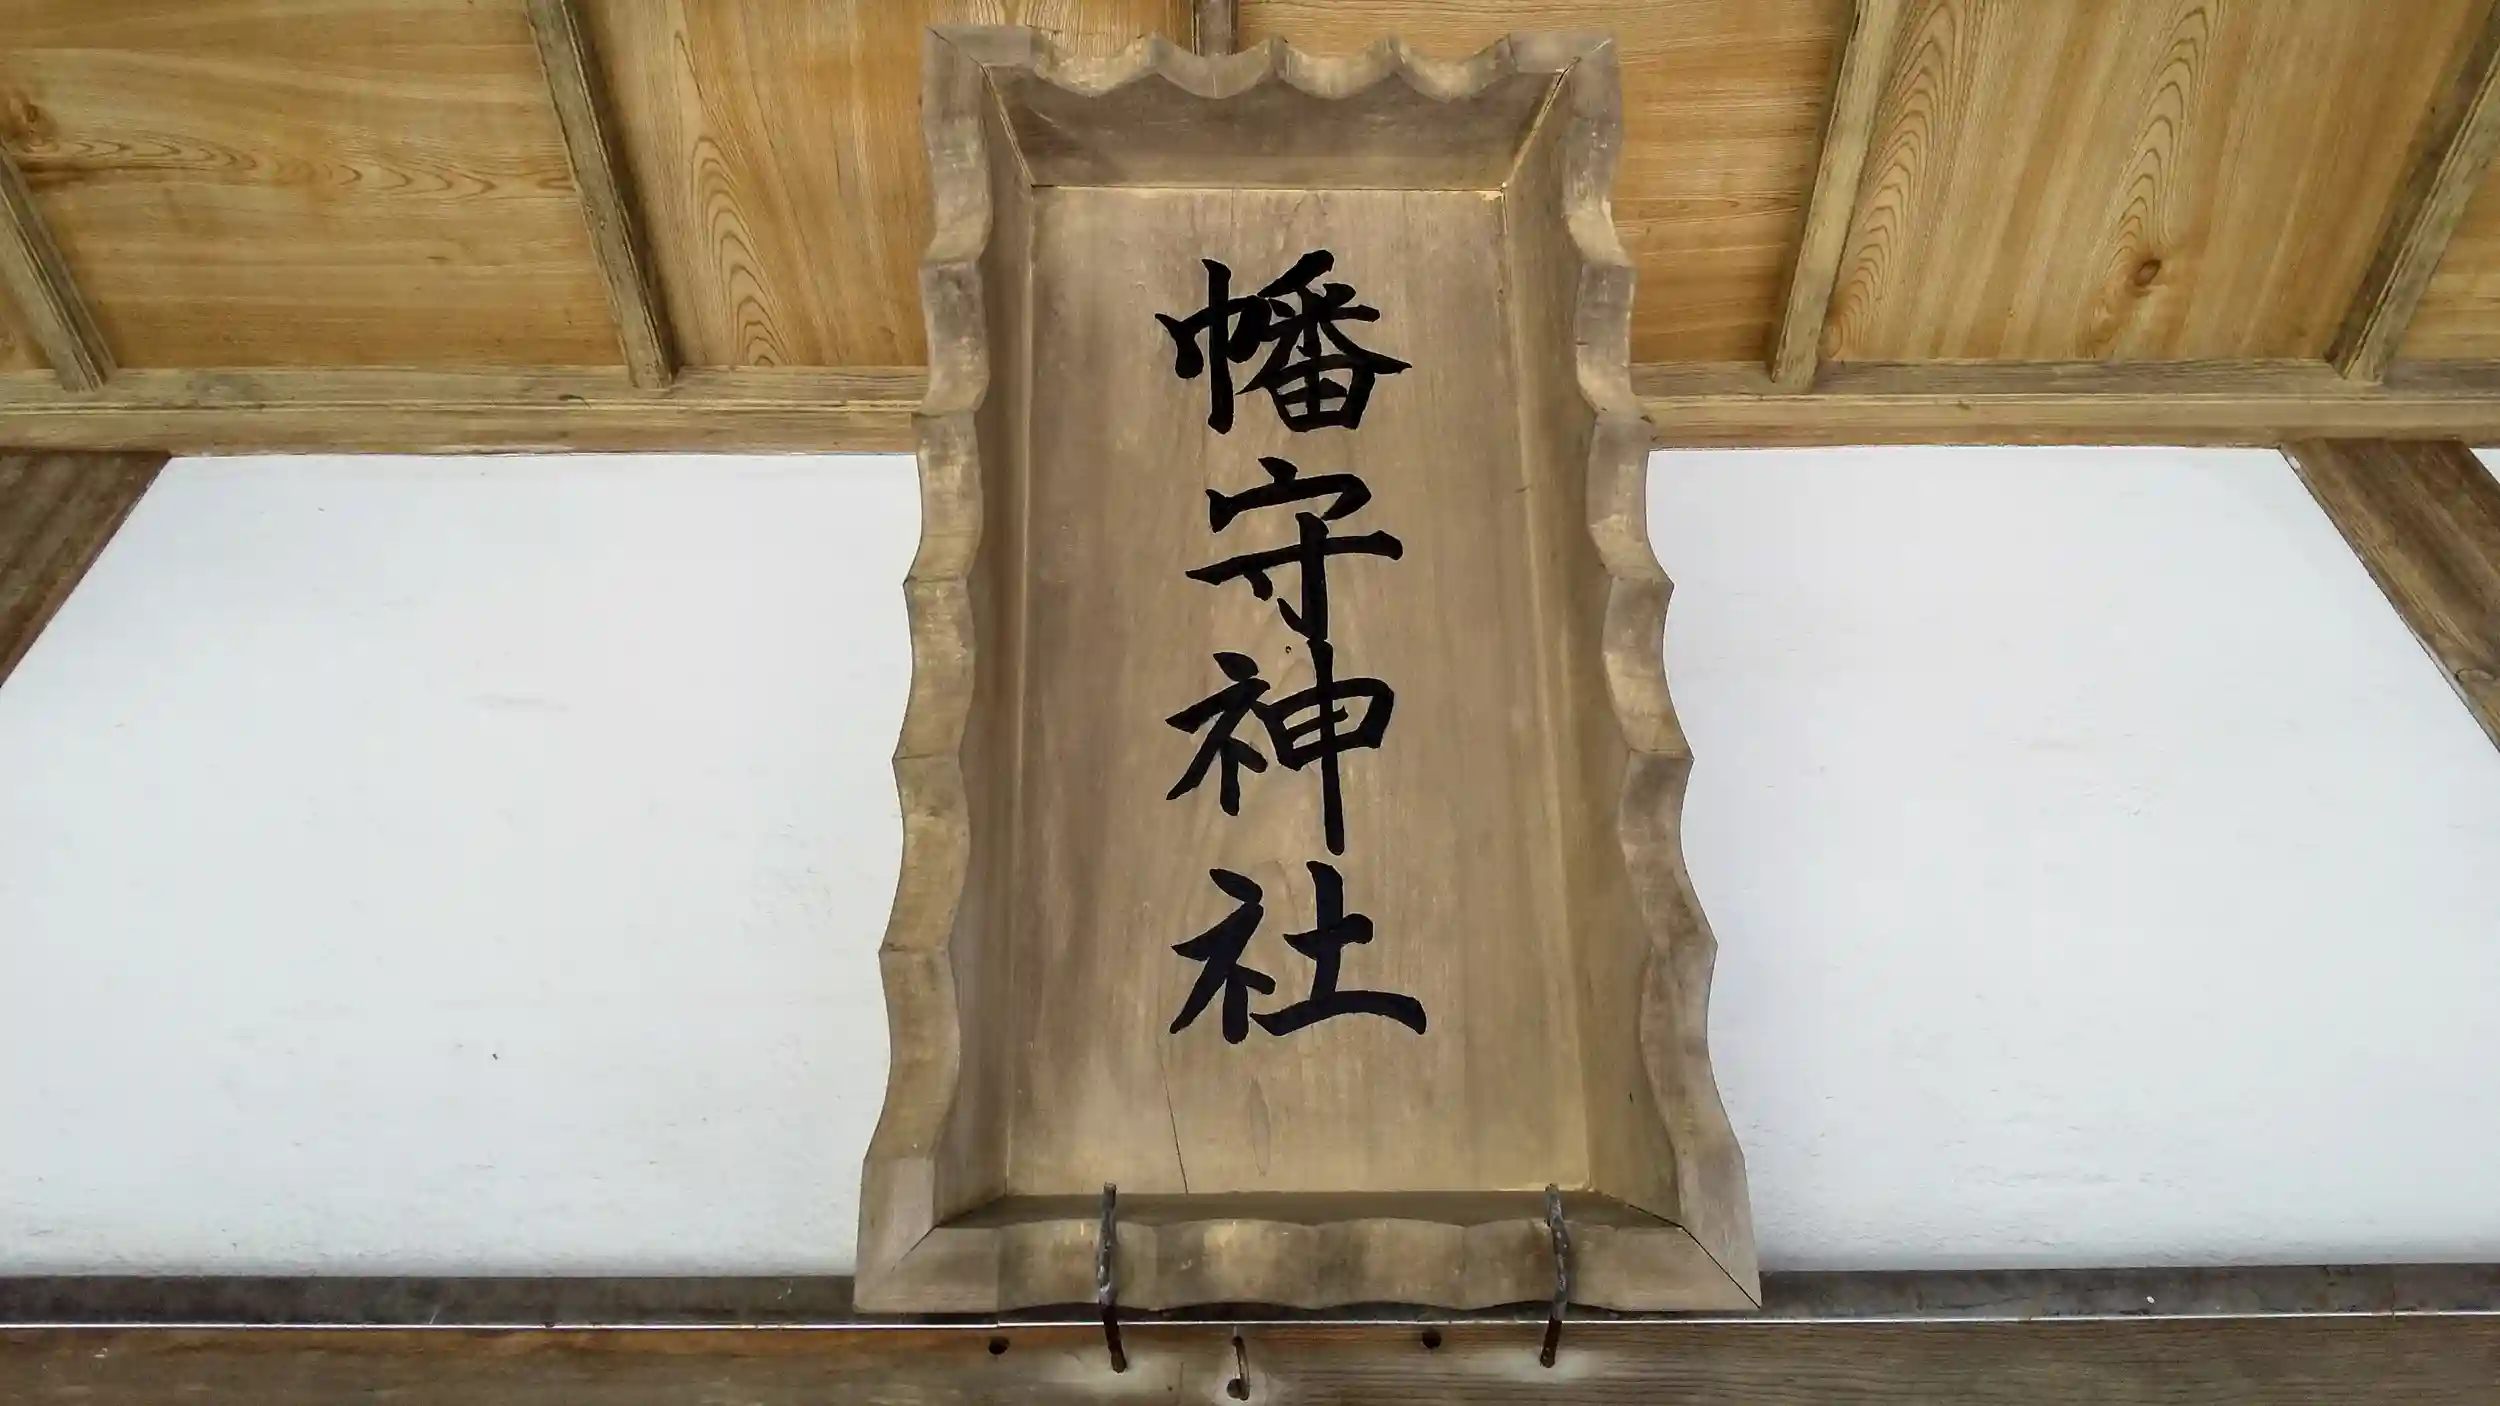 幡守神社